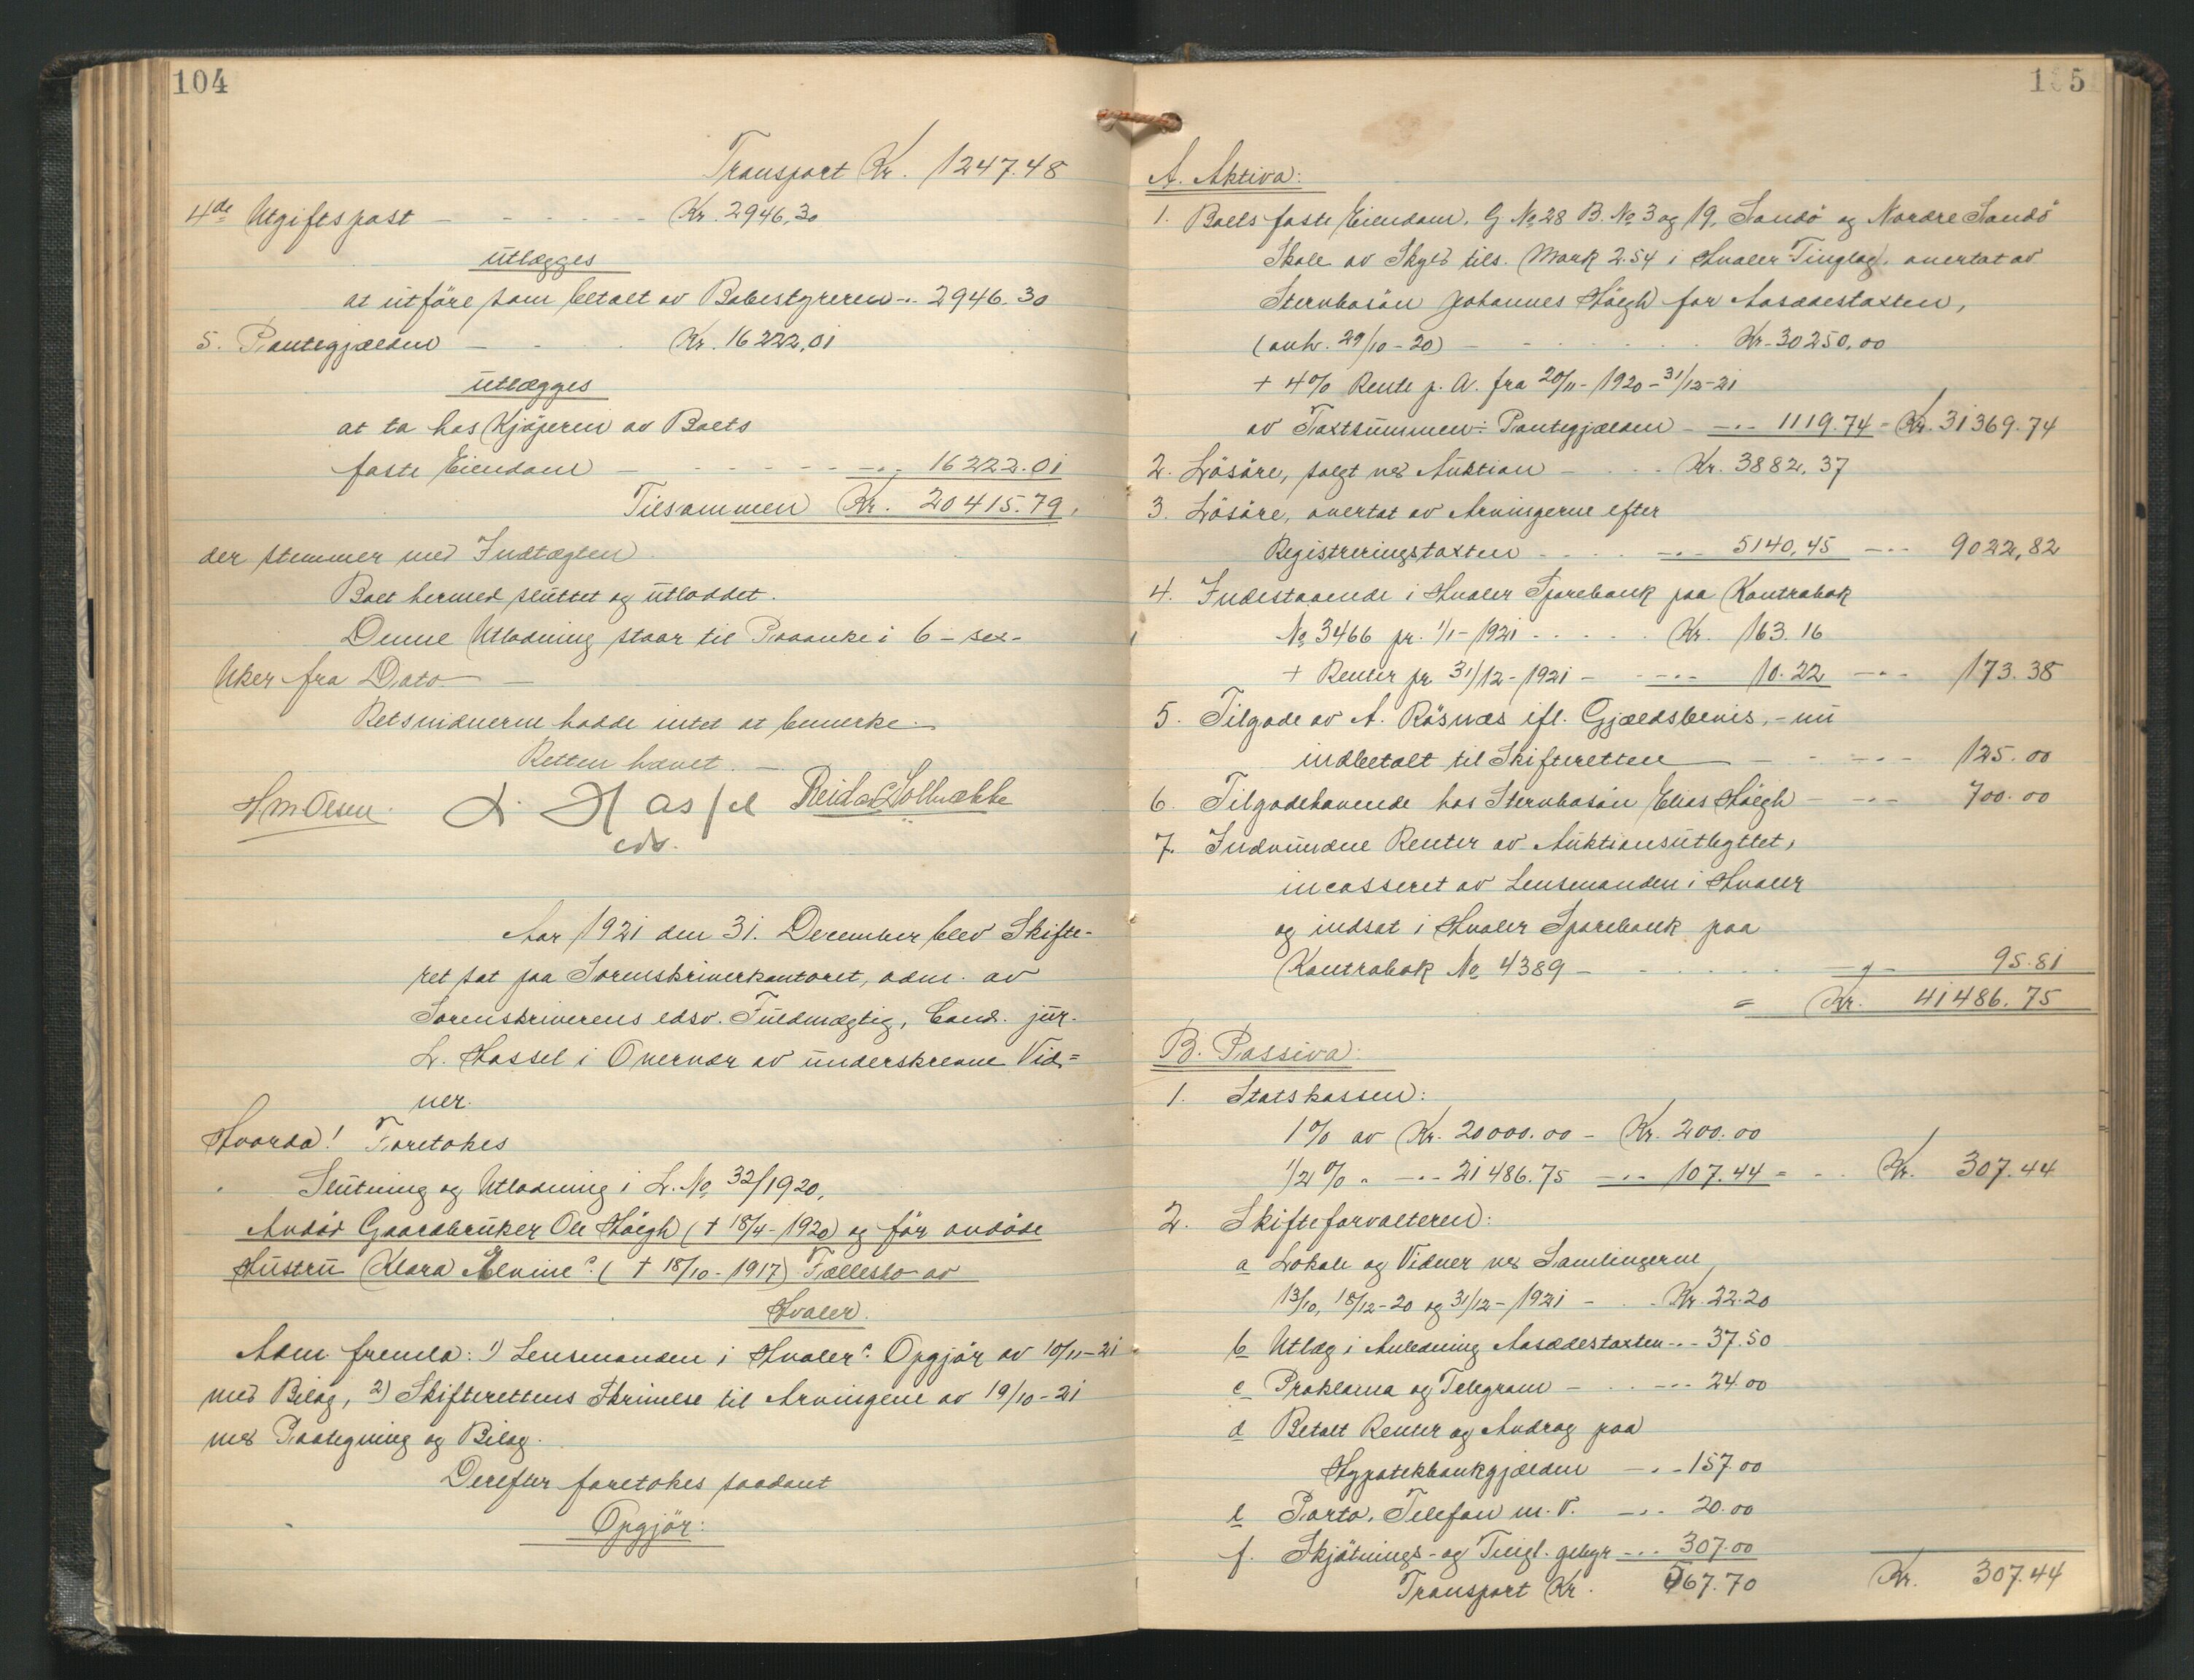 104
Transport Kr. 1247.48
4de Utgiftspost - - - - - - Kr. 2946,30
utlægges
at utföre som betalt av Bobestyreren -.- 2946.30
5. Pantegjælden - - - - Kr. 16222,01
utlægges
at ta hos Kjöperen av Boets
faste Eiendom - - - - - - -.- 16222.01
Tilsammen Kr. 20415.79,
der stemmer med Indtægten.
Boet hermed sluttet og utloddet.
Denne Utlodning staar til Paaanke i 6 - sex -
Uker fra Dato -
Retsvidnerne hadde intet at bemerke.
Retten hævet. -
H M Olsen. L. Hassel Reidar Solbrække
cds.
Aar 1921 den 31. December blev Skifte-
ret sat paa Sorenskriverkontoret, adm. av
Sorenskriverens edsv. Fuldmægtig, Cand. jur.
L. Hassel i Overvær av underskrevne Vid=
ner.
Hvorda! Foretokes
Slutning og Utlodning i L. No 32/1920,
Avdöd Gaardbruker Ole Höegh († 18/4-1920) og før avdöde
Hustru Klara Elvine's († 18/10-1917) Fællesbo av
Hvaler.
Adm. fremla: 1) Lensmanden i Hvaler's Opgjör av 10/11-21
med Bilag, 2) Skifterettens Skrivelse til Arvingene av 19/10-21
med Paategning og Bilag.
Derefter foretokes saadant
Opgjör:
105
A. Aktiva:
1. Boets faste Eiendom, G. No 28 B. No 3 og 19, Sandö og Nordre Sandö
Skole av Skyld tils. Mark 2.54 i Hvaler Tinglag, overtat av
Stervbosön Johannes Höegh for Aasædestaxten,
(avh. 29/10-20) - - - - - - Kr. 30250,00
+ 4% Rente p. A. fra 20/11-1920-31/12-21
av Taxtsummen ÷ Pantegjælden - -.- 1119.74 = Kr. 31369.74
2. Lösöre, solgt ved Auktion - - - - Kr. 3882,37
3. Lösöre, overtat av Arvingerne efter
Registreringstaxten - - - - -.- 5140,45 -.- 9022,82
4. Indestaaende i Hvaler Sparebank paa Kontrabok
No 3466 pr. 1/1-1921 - - - - - Kr. 163.16
+ Renter pr. 31/12-1921 - -.- 10.22 -.- 173.38
5. Tilgode av A. Rösnæs ifl. Gjældsbevis, - nu
indbetalt til Skifteretten - - -.- 125.00
6. Tilgodehavende hos Stervbosön Elias Höegh - -.- 700.00
7. Indvundne Renter av Auktionsutbyttet,
incasseret av Lensmanden i Hvaler
og indsat i Hvaler Sparebank paa
Kontrabok No 4389 - - - - - -.- 95.81
= Kr. 41486.75
B. Passiva:
1. Statskassen:
1% av Kr. 20000.00 - Kr. 200.00
1/2% " -.- 21486.75 -.- 107.44 = - - Kr. 307.44
2. Skifteforvalteren:
a Lokale og Vidner ved Samlingerne
13/10, 18/12-20 og 31/12-1921 - - Kr. 22.20
b Utlæg i Anledning Aasædestaxten -.- 37.50
c Proklama og Telegram - - -.- 24.00
d Betalt Renter og Avdrag paa
Hypotekbankgjælden -.- 157.00
e Porto, Telefon m. v. -.- 20.00
f. Skjötnings- og Tingl. gebyr -.- 307.00
Transport Kr. 567.70 Kr. 307.44